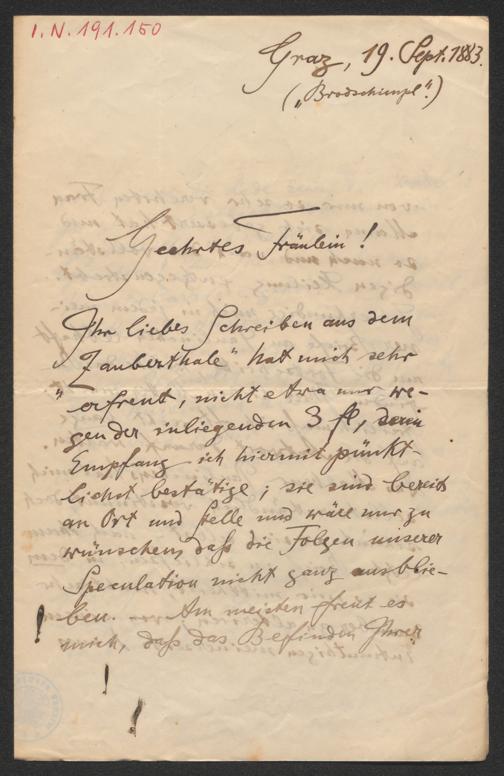 I.N. 191.150
Graz, 19. Sept. 1883.
("Brodschimpl".)
Geehrtes Fräulein!
Ihr liebes Schreiben aus dem
"Zauberthale" hat mich sehr
erfreut, nicht etwa nur we-
gen der inliegenden 3 fl, deren
Empfang ich hiermit pünkt-
lichst bestätige; sie sind bereits
an Ort und Stelle und wäre nur zu
wünschen, daß die Folgen unserer
Speculation nicht ganz ausblie-
ben. Am meisten freut es
mich, daß das Befinden Ihrer